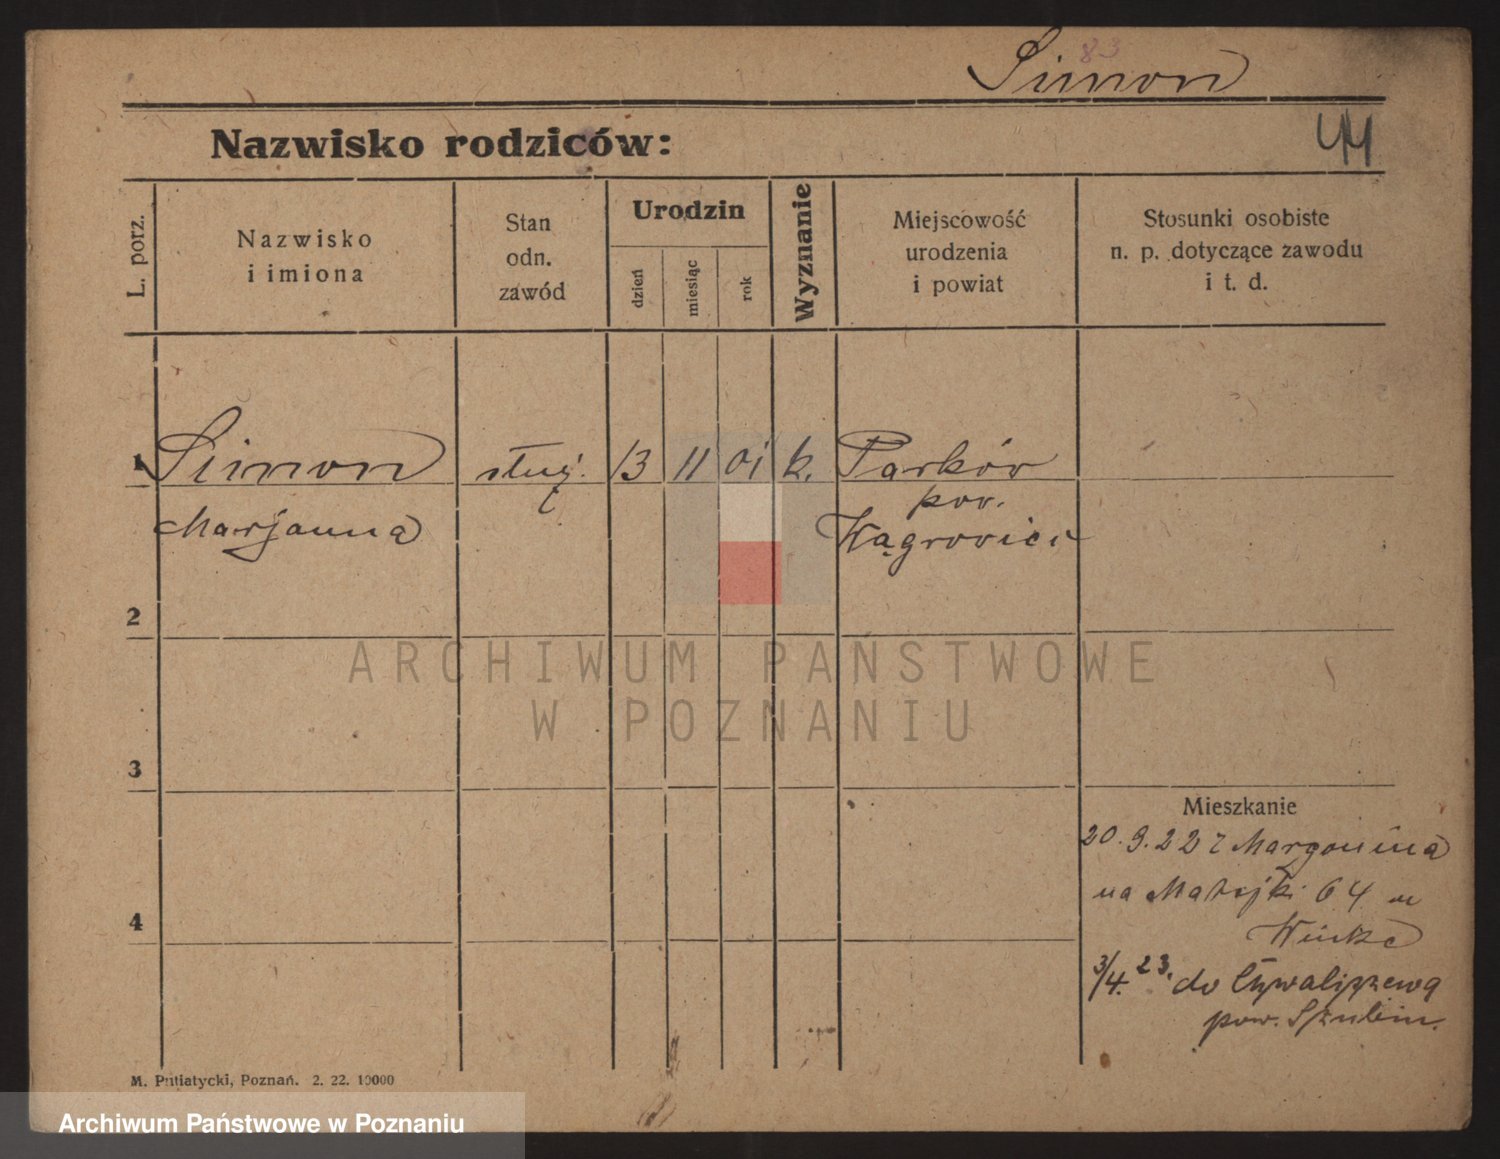 83
Simon
44
Nazwisko rodziców:
L. porz.
Nazwisko
i imiona
Stan
odn.
zawód
Urodzin
dzień
miesiąc
rok
Wyznanie
Miejscowość
urodzenia
i powiat
Stosunki osobiste
n. p. dotyczące zawodu
i t. d.
1 Simon służ. 13 11 01 k. Parków
Marjanna pow.
Wągrowiec
2
3
4
ARCHIWUM PAŃSTWOWE
W POZNANIU
Mieszkanie
20.9.22 z Margonina
na Matejki 64 u
3/4.23. do
pow. Szubin.
M. Putiatycki, Poznań. 2. 22. 10000
Archiwum Państwowe w Poznaniu